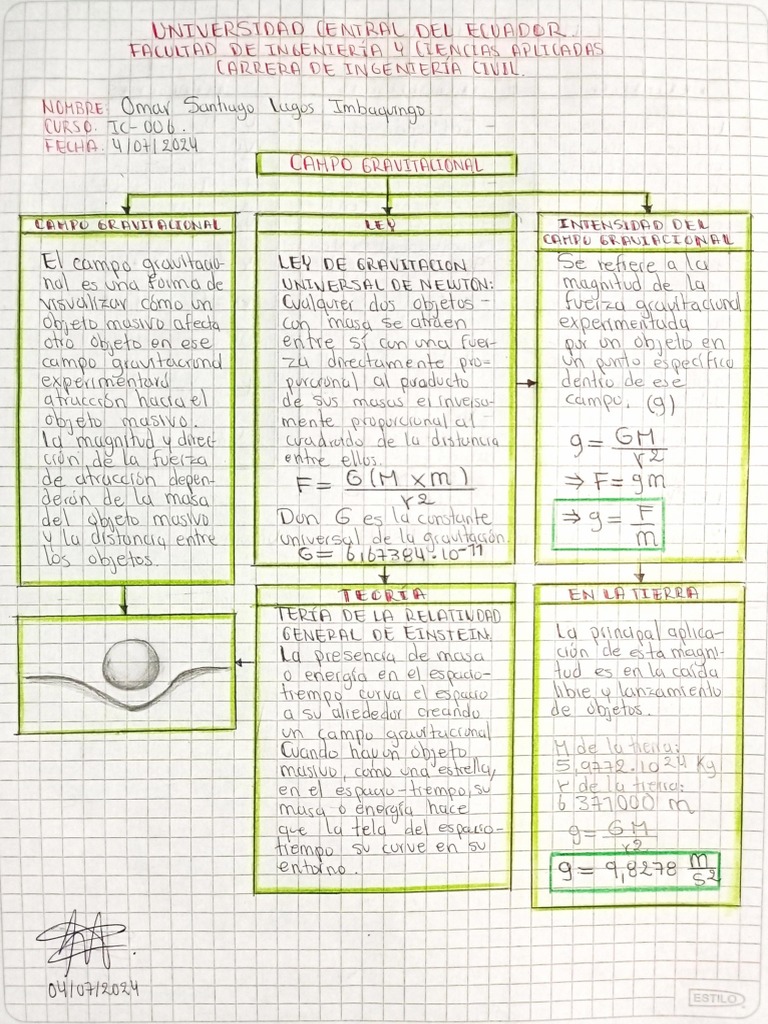 UNIVERSIDAD CENTRAL DEL ECUADOR.
FACULTAD DE INGENIERÍA Y CIENCIAS APLICADAS
CARRERA DE INGENIERÍA CIVIL.
NOMBRE: Omar Santiago Lugos Imbaquingo
CURSO: IC-006.
FECHA: 4/07/2024
CAMPO GRAVITACIONAL
CAMPO GRAVITACIONAL
El campo gravitacio-
nal es una forma de
visualizar cómo un
objeto masivo afecta
otro objeto en ese
campo gravitacional
experimentará
atracción hacia el
objeto masivo.
La magnitud y direc-
ción de la fuerza
de atracción depen-
derán de la masa
del objeto masivo
y la distancia entre
los objetos.
LEY
LEY DE GRAVITACION
UNIVERSAL DE NEWTON:
Cualquier dos objetos -
con masa se atraen
entre sí con una fuer-
za directamente pro-
porcional al producto
de sus masas e inversa-
mente proporcional al
cuadrado de la distancia
entre ellos.
F = G(M x m) / r2
Don G es la constante
universal de la gravitación.
G = 6,67384·10-11
INTENSIDAD DEL
CAMPO GRAVIACIONAL
Se refiere a la
magnitud de la
fuerza gravitacional
experimentada
por un objeto en
un punto específico
dentro de ese
campo. (g)
g = GM / r2
⇒ F = gm
⇒ g = F / m
TEORÍA
TERÍA DE LA RELATIVIDAD
GENERAL DE EINSTEIN.
La presencia de masa
o energía en el espacio-
tiempo curva el espacio
a su alrededor creando
un campo gravitacional
Cuando hay un objeto
masivo, como una estrella,
en el espacio-tiempo, su
masa o energía hace
que la tela del espacio-
tiempo su curve en su
entorno.
EN LA TIERRA
La principal aplica-
ción de esta magni-
tud es en la caída
libre y lanzamiento
de objetos.
M de la tierra:
5,9772·1024 Kg
r de la tierra:
6 371000 m
g = GM / r2
g = 9,8278 m / s2
04/07/2024
ESTILO